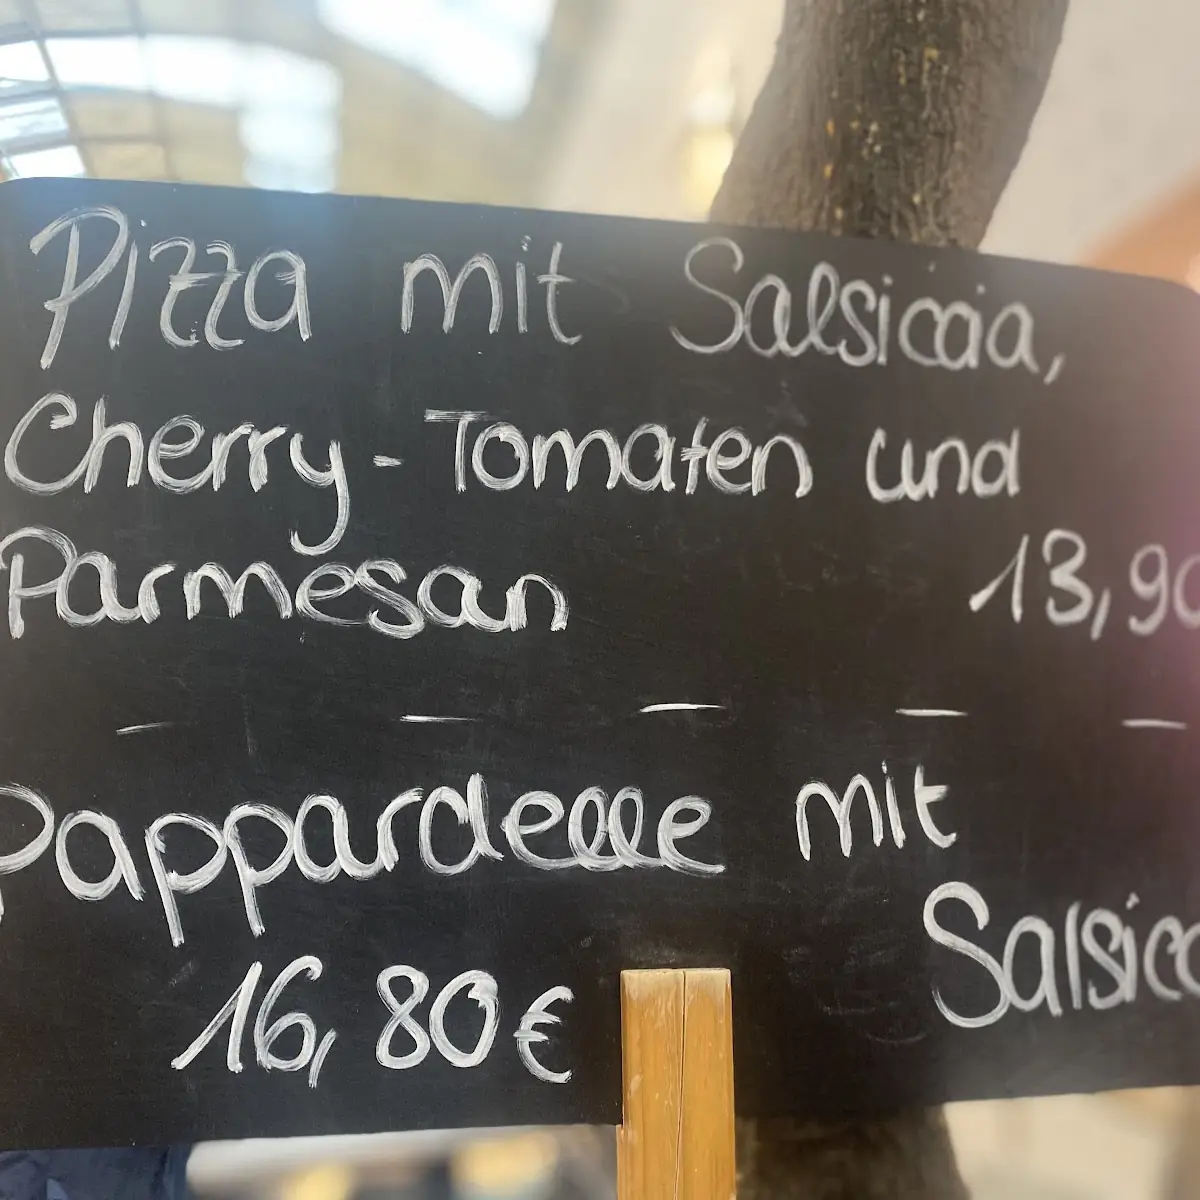 Pizza mit Salsiccia,
Cherry-Tomaten und
Parmesan 13,90
Pappardelle mit
Salsicc
16,80€